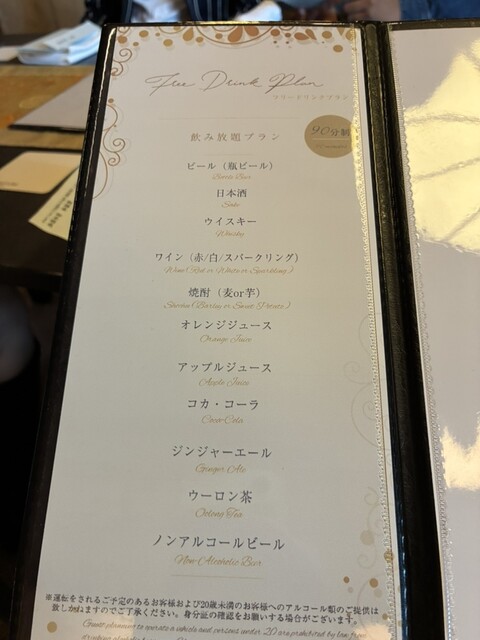 Free Drink Plan
フリードリンクプラン
飲み放題プラン
90分制
ビール（瓶ビール）
Bottle Beer
日本酒
Sake
ウイスキー
Whisky
ワイン（赤/白/スパークリング）
Wine (Red or White or Sparkling)
焼酎（麦or芋）
Shochu (Barley or Sweet Potato)
オレンジジュース
Orange Juice
アップルジュース
Apple Juice
コカ・コーラ
Coca-Cola
ジンジャーエール
Ginger Ale
ウーロン茶
Oolong Tea
ノンアルコールビール
Non-Alcoholic Beer
※運転をされるご予定のあるお客様および20歳未満のお客様へのアルコール類のご提供は
致しかねますのでご了承ください。身分証の確認をお願いする場合がございます。
Guests planning to operate a vehicle and persons under 20 are prohibited by law from